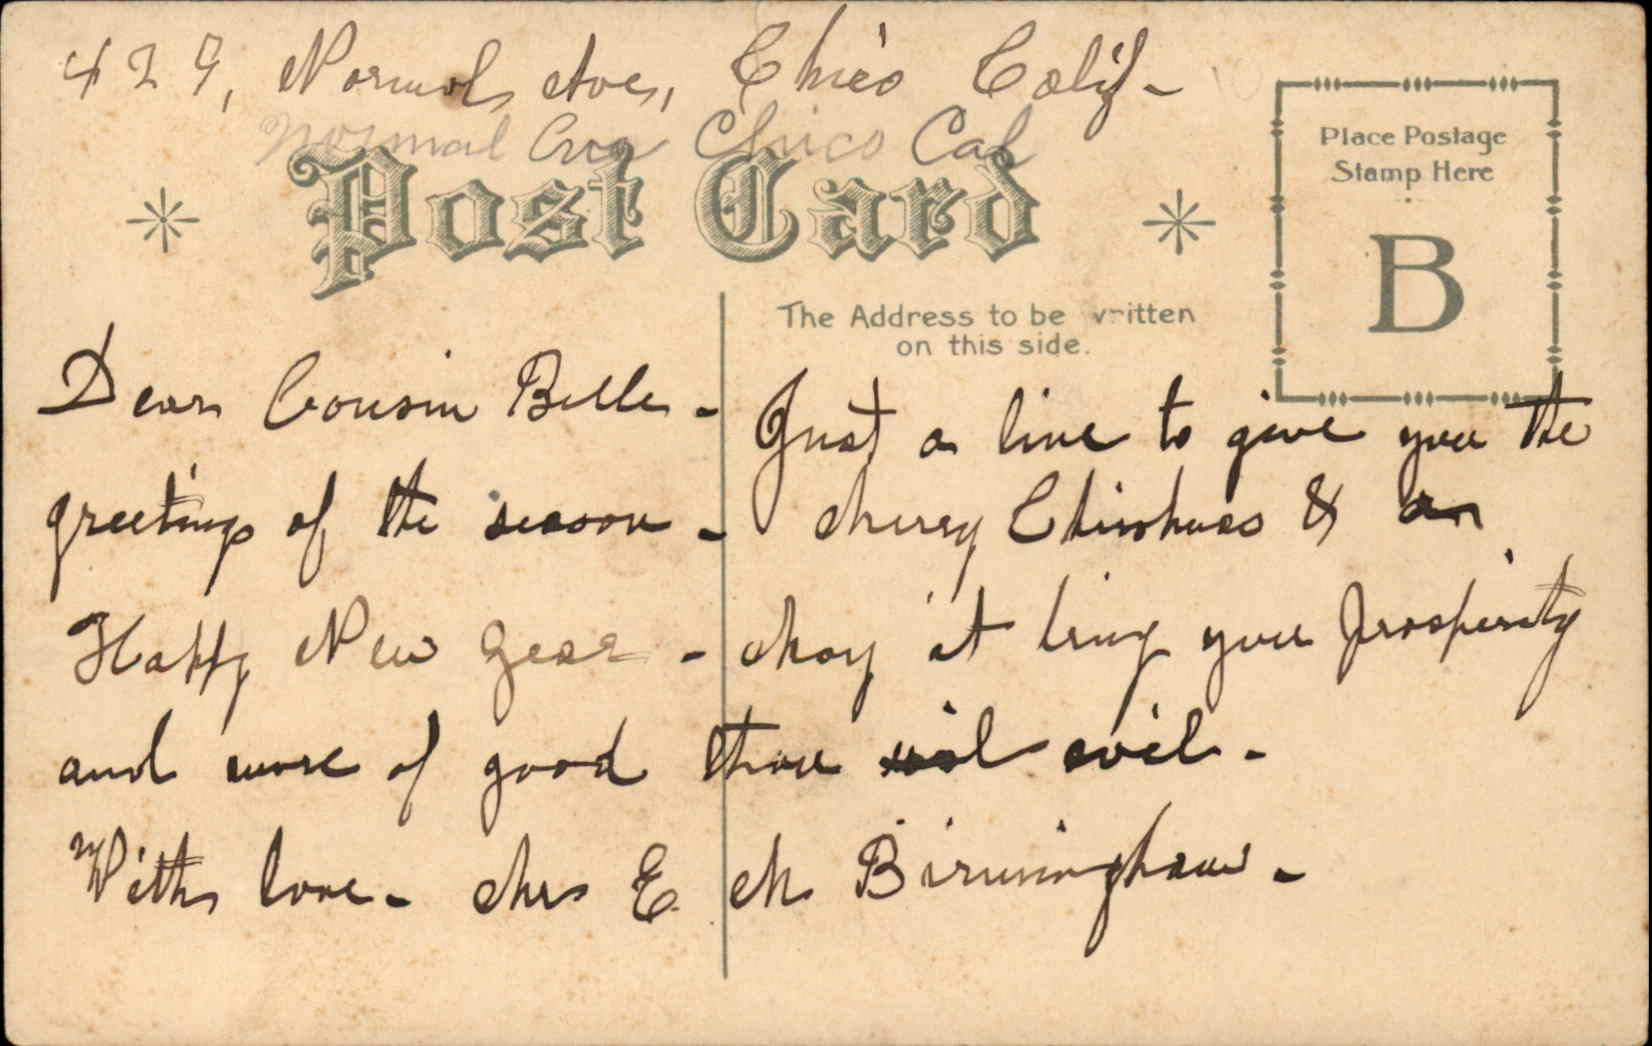 429, Normal Ave, Chico Calif-
Normal Ave Chico Cal
Post Card
Place Postage
Stamp Here
B
The Address to be written
on this side.
Dear Cousin Belle - Just a line to give you the
greetings of the season - Merry Christmas & a
Happy New Year - May it bring you prosperity
and more of good than evil -
With love - Mrs E M Birmingham -